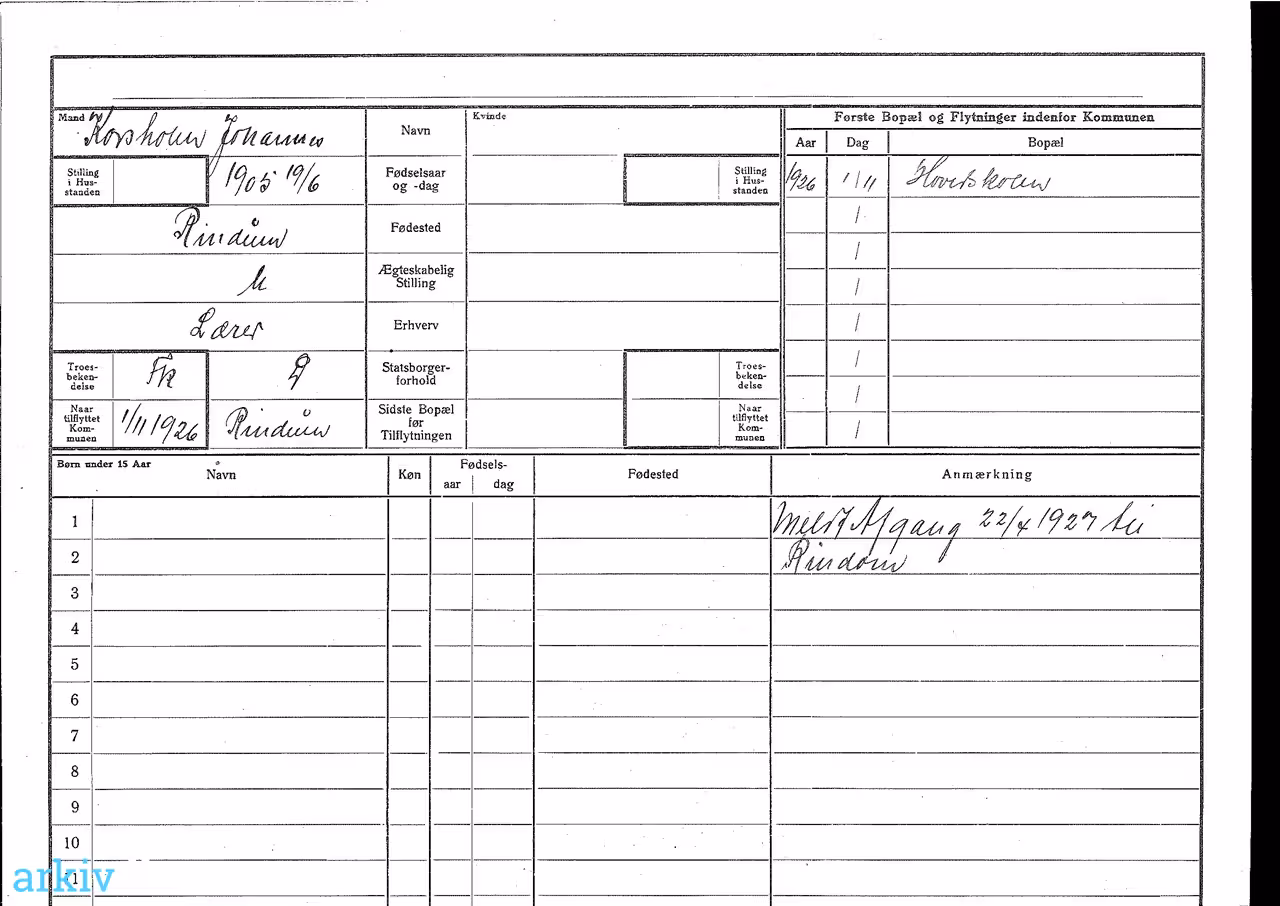 Mand
Korsholm Johannes
Navn
Kvinde
Stilling
i Hus-
standen
1905 19/6
Fødselsaar
og -dag
Stilling
i Hus-
standen
Rindum
Fødested
Ægteskabelig
Stilling
Lærer
Erhverv
Troes-
beken-
delse
Fk
D
Statsborger-
forhold
Troes-
beken-
delse
Naar
tilflyttet
Kom-
munen
1/11 1926
Rindum
Sidste Bopæl
før
Tilflytningen
Naar
tilflyttet
Kom-
munen
Første Bopæl og Flytninger indenfor Kommunen
Aar Dag Bopæl
1926 1/11 Hovedskolen
/
/
/
/
/
/
/
Børn under 15 Aar
Navn
Køn
Fødsels-
aar dag
Fødested
Anmærkning
1 Meldt Afgang 22/4 1927 til
2 Rindom
3
4
5
6
7
8
9
10
11
arkiv